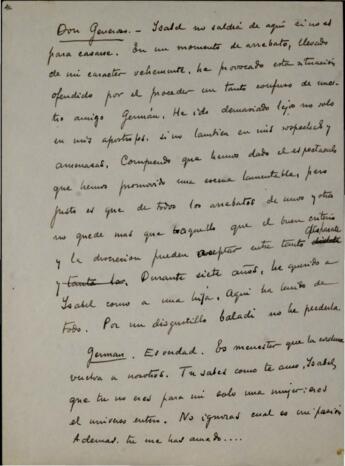 Don Generoso.- Isabel no saldrá de aquí si no es
para casarse. En un momento de arrebato, llevado
de mi caracter vehemente, he provocado esta situación
ofendido por el proceder un tanto confuso de nues-
tro amigo Germán. He ido demasiado lejos no solo
en mis apostrofes, si no tambien en mis sospechas y
amenazas. Comprendo que hemos dado el espectaculo
que hemos promovido una escena lamentable, pero
justo es que de todos los arrebatos de unos y otros
no quede mas que aquello que el buen criterio
y la discrecion pueden aceptar entre tanto disparate
y tanta
Durante siete años, he querido a
Isabel como a una hija. Aqui ha tenido de
todo. Por un disgustillo baladi no he perderla
German. Es verdad. Es menester que la cordura
vuelva a nosotros. Tu sabes como te amo, Isabel,
que tu no eres para mi solo una mujer: eres
el universo entero. No ignoras cual es mi pasión
Ademas tu me has amado....